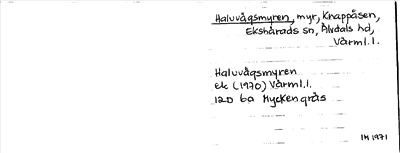 Haluvågsmyren, myr, Knappåsen,
Ekshärads sn, Älvdals hd,
Värml. l.
Haluvågsmyren
ek (1970) Värml. l.
12D 6a Myckengräs
IM 1971